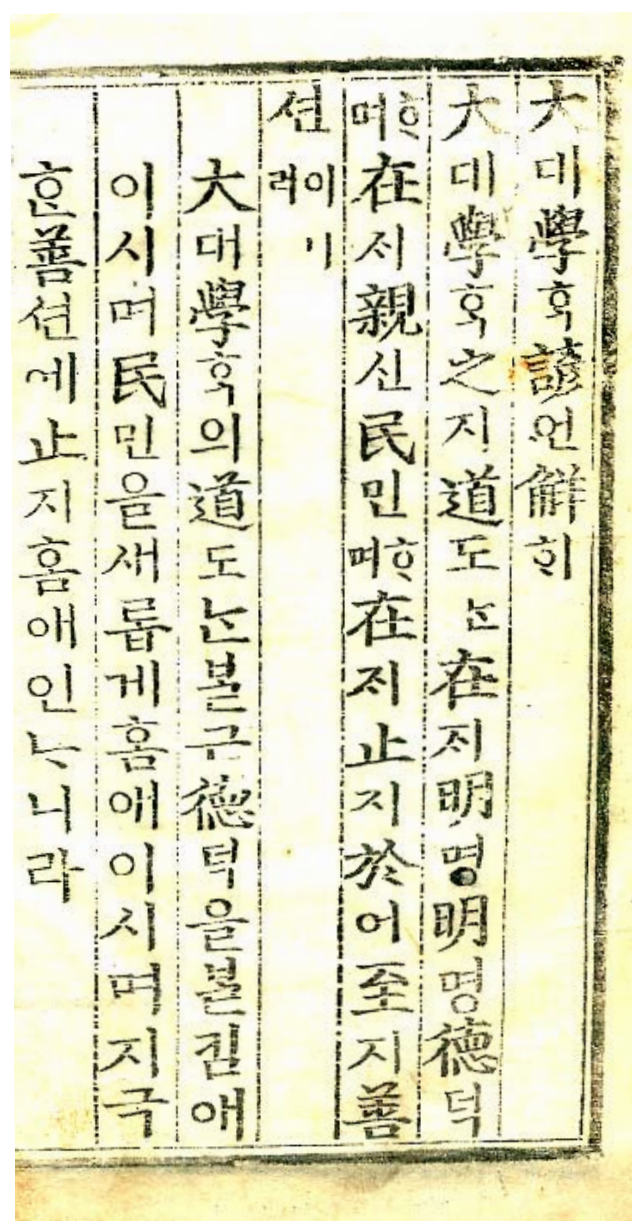 大대學ᄒᆞᆨ諺언觧ᄒᆡ
大대學ᄒᆞᆨ之지道도ᄂᆞᆫ在ᄌᆡ明명明명德덕
ᄒᆞ며在ᄌᆡ親신民민ᄒᆞ며在ᄌᆡ止지於어至지善
션이니라
大대學ᄒᆞᆨ의道도ᄂᆞᆫᄇᆞᆯ근德덕을ᄇᆞᆯ킴애
이시며民민을새롭게홈애이시며지극
ᄒᆞᆫ善션에止지홈애인ᄂᆞ니라